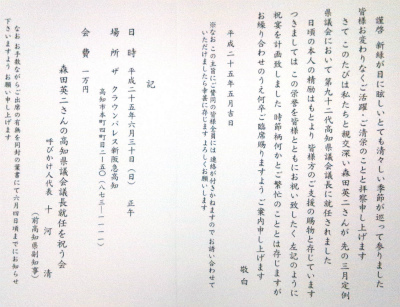 謹啓 新緑が目に眩しいとても清々しい季節が巡って参りました
皆様お変わりなくご活躍・ご清栄のことと拝察申し上げます
さて このたびは私たちと親交深い森田英二さんが 先の三月定例
県議会において第九十二代高知県議会議長に就任されました
日頃の本人の精励はもとより 皆様方のご支援の賜物と存じています
つきましては この栄誉を皆様とともにお祝い致したく 左記のように
祝宴を計画致しました 時節柄何かとご繁忙のこととは存じますが
お繰り合わせのうえ何卒ご臨席賜りますよう ご案内申し上げます
敬白
平成二十五年五月吉日
※なお この主旨にご賛同の皆様全員には 連絡が付きかねますので お誘い合わせて
いただけましたら幸甚に存じます よろしくお願いします
記
日 時 平成二十五年六月三十日(日) 正午
場 所 ザ クラウンパレス新阪急高知
高知市本町四町目二-五〇(八七三-一一一一)
会 費 一万円
森田英二さんの高知県議会議長就任を祝う会
呼びかけ人代表 十河 清
(前高知県副知事)
なお お手数ながらご出席の有無を同封の葉書にて六月四日頃までにお知らせ
下さいますよう お願い申し上げます